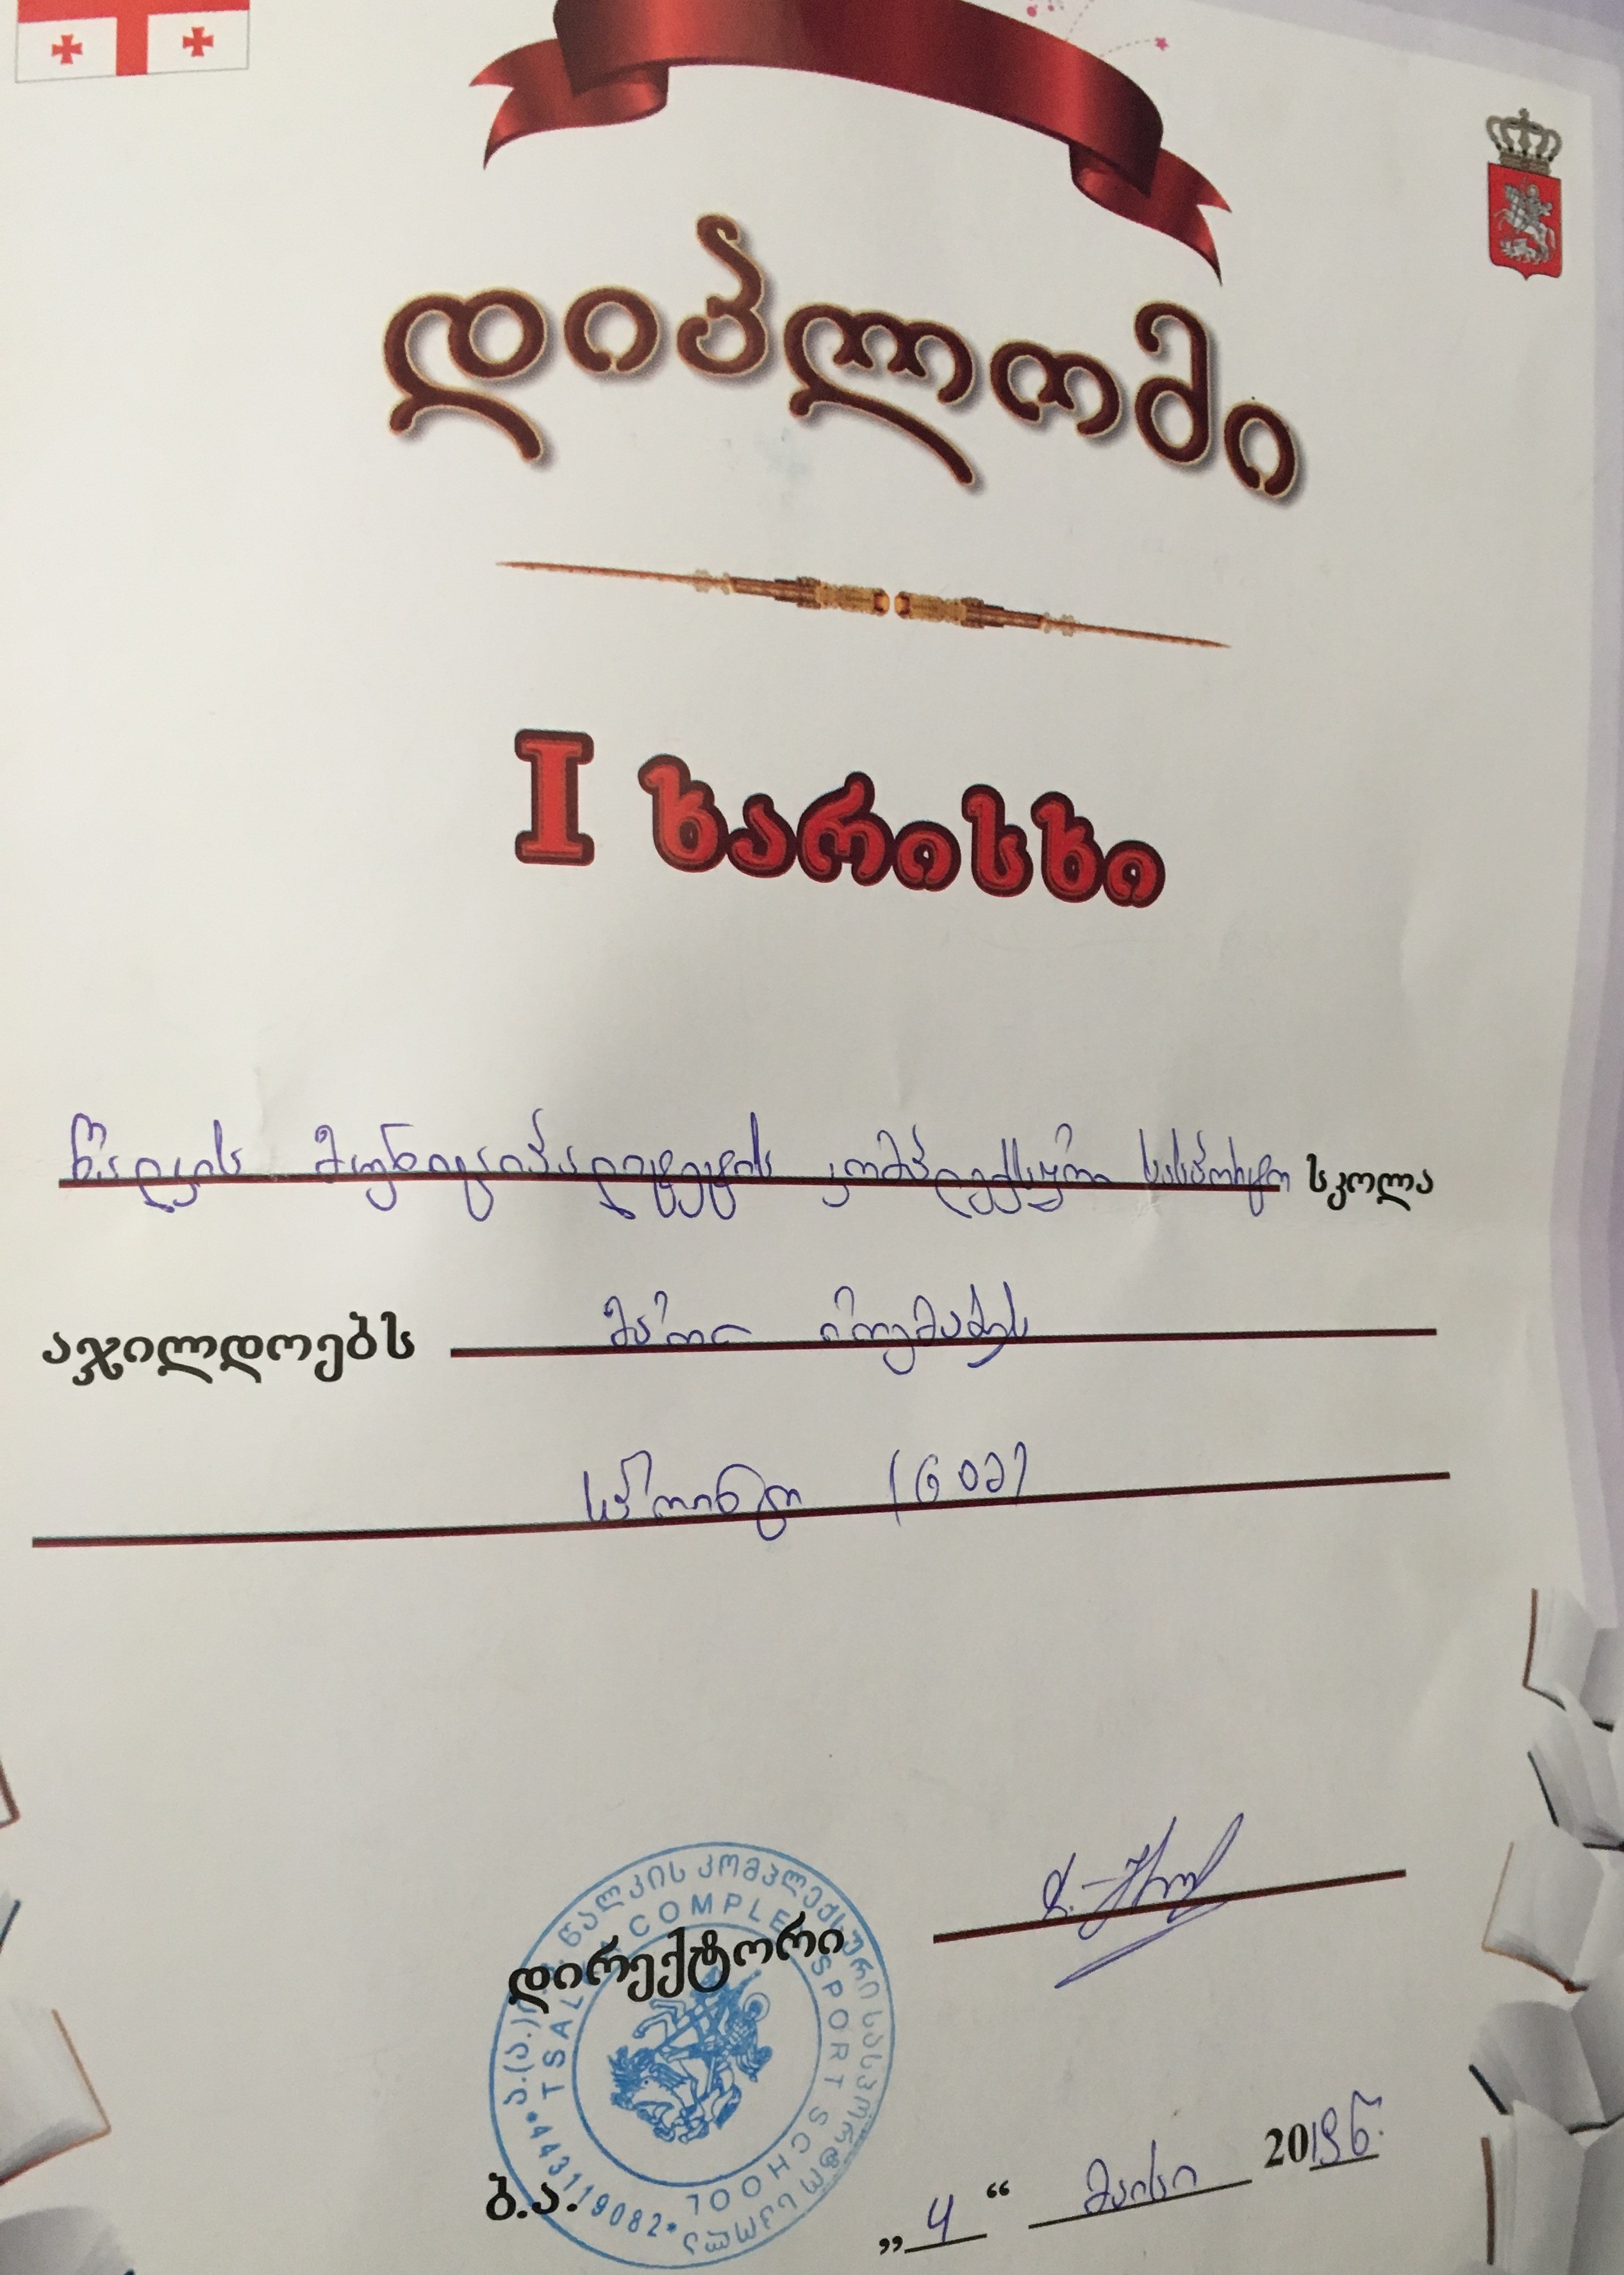 დიპლომი
I ხარისხი
წალკის მუნიციპალიტეტის კომპლექსური სასპორტო სკოლა
აჯილდოებს
სპრინტი (60მ)
ა.(ა.)ი.პ. წალკის კომპლექსური სასპორტო სკოლა
TSALKA COMPLEX SPORT SCHOOL
*443119082*
დირექტორი
ბ.ა.
„4“ მაისი 2019წ.